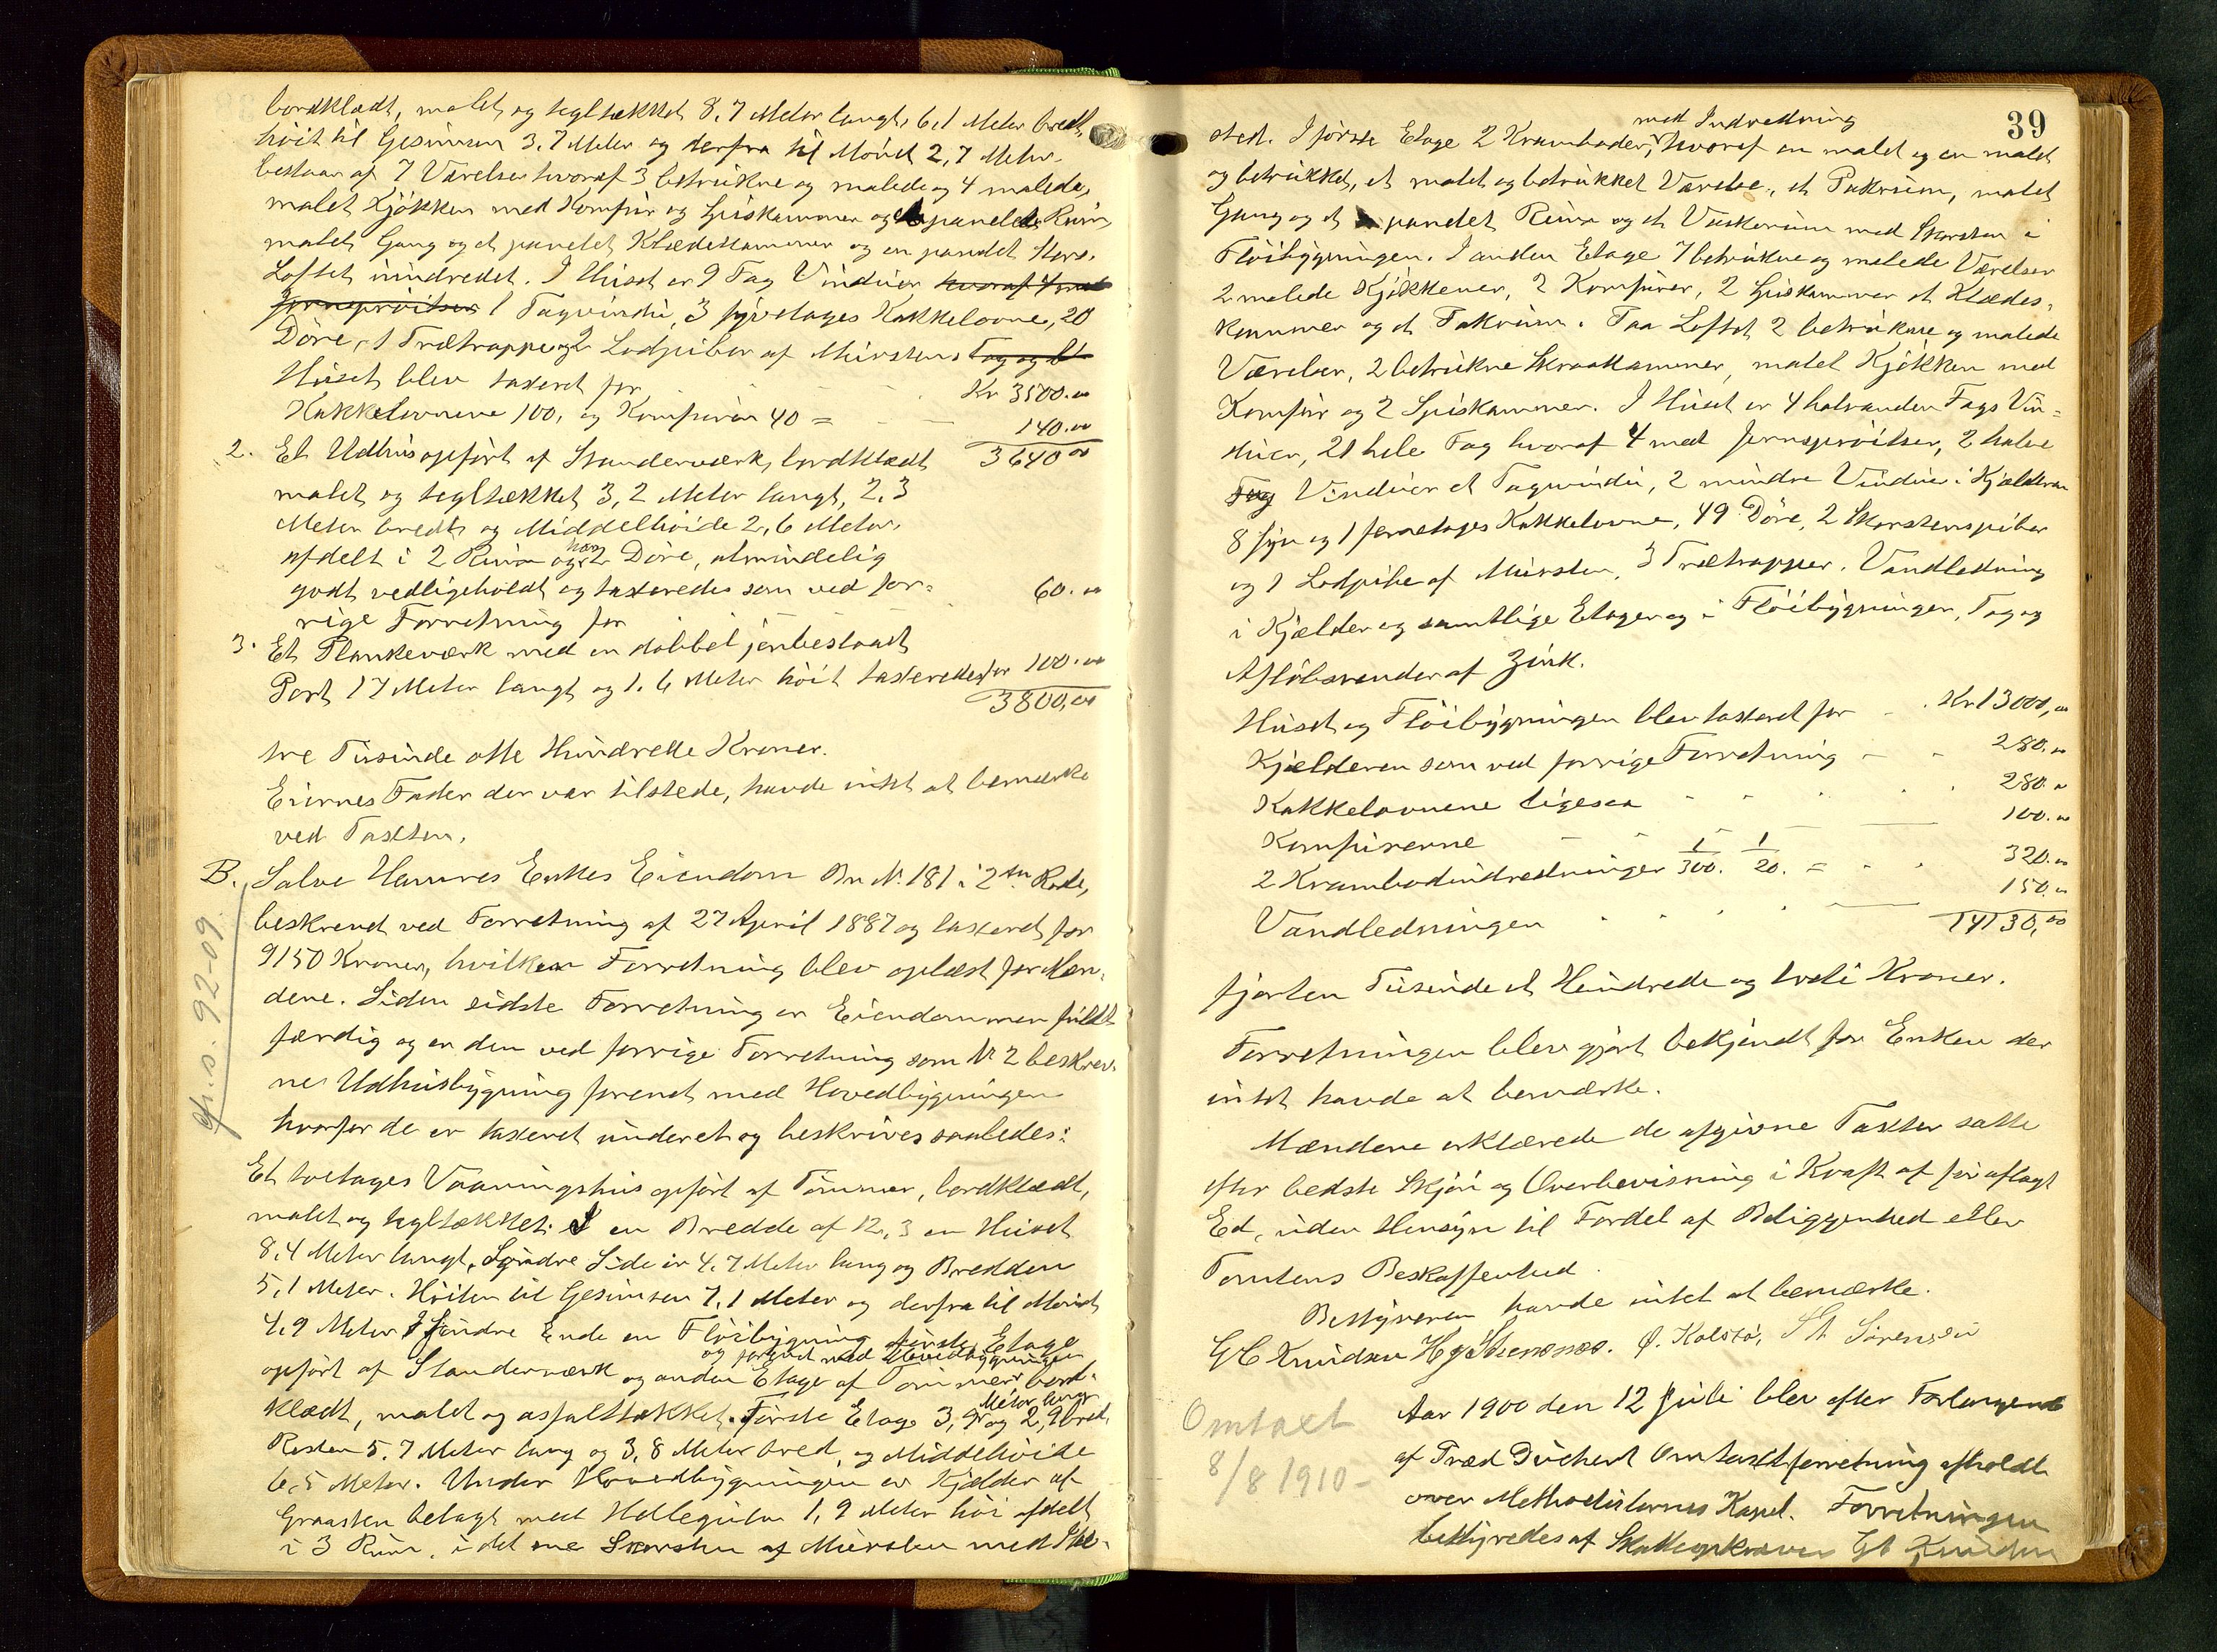 bordklædt, malet og tegltækket 8,7 Meter langt, 6,1 Meter bredt,
höit til Gesimsen 3,7 Meter og derfra til Mönet 2,7 Meter.
bestaar af 7 Værelser hvoraf 3 betrukne og malede og 4 malede,
malet Kjökken med Komfur og Spiskammer og panelet Rum,
malet Gang og et panelet Klædeskammer og en panelet
Loftet uindredet. I Huset er 9 Fag Vinduer hvoraf 4 med
Jernspröitser 1 Tagvindu, 3 fyretages Kakkelovne, 20
Döre, 1 Trætrappe og 2 Lodpiber af Mursten. Tag og
Huset blev taxeret for Kr 3500.00
Kakkelovnene 100, og Komfuren 40 = 140.00
3640.00
2. Et Udhus opfört af Standerværk, bordklædt
malet og tegltækket 3,2 Meter langt, 2,3
Meter bredt og Middelhöide 2,6 Meter,
afdelt i 2 Rum og har 2 Döre, almindelig
godt vedligeholdt og taxeredes som ved for-
rige Forretning for 60.00
3. Et Plankeværk med en dobbel jernbeslaaet
Port 17 Meter langt og 1.6 Meter höit taxeredes for 100.00
3800,00
tre Tusinde otte Hundrede Kroner.
Eiernes Fader der var tilstede, havde intet at bemærke
ved Taxten.
B. Salve Hannes Enkes Eiendom Br. N. 181 i 2den Rode,
beskrevet ved Forretning af 27 April 1887 og taxeret for
9150 Kroner, hvilken Forretning blev oplæst for Mæn-
dene. Siden sidste Forretning er Eiendommen fuldt
færdig og er den ved forrige Forretning som N. 2 beskrev-
ne Udhusbygning forenet med Hovedbygningen
hvorfor de er taxeret underet og beskrives saaledes:
92-09.
Et toetages Vaaningshus opfört af Tömmer, bordklædt,
malet og tegltækket. I en Bredde af 12,3 er Huset
8,4 Meter langt, Söndre Side er 4,7 Meter lang og Bredden
5,1 Meter. Höiden til Gesimsen 7,1 Meter og derfra til Mönet
4,9 Meter I söndre Ende en Flöibygning förste Etage
og forenet med Hovedbygningen
opfört af Standerværk og anden Etage af Tömmer bord-
klædt, malet og asfalttækket. Förste Etage 3,9 Meter lang og 2,9 bred,
Resten 5.7 Meter lang og 3,8 Meter bred og Middelhöide
6,5 Meter. Under Hovedbygningen er Kjælder af
Graasten belagt med Hellegulv 1,9 Meter höi afdelt
i 3 Rum, i det ene Skorsten af Mursten med Ild-
39
sted. I förste Etage 2 Kramboder, med Indredning hvoraf en malet og en malet
og betrukket, et malet og betrukket Værelse, et Pakrum, malet
Gang og et panelet Rum og et Vaskerum med Skorsten i
Flöibygningen. I anden Etage 7 betrukne og malede Værelser
2 malede Kjökkener, 2 Komfurer, 2 Spiskammer et Klædes-
kammer og et Pakrum. Paa Loftet 2 betrukne og malede
Værelser, 2 betrukne Skraakammer, malet Kjökken med
Komfur og 2 Spiskammer. I Huset er 4 halvanden Fags Vin-
duer, 21 hele Fag hvoraf 4 med Jernspröitser, 2 halve
Fag Vinduer et Tagvindu, 2 mindre Vinduer i Kjælderen
8 fyr og 1 femetages Kakkelovne, 49 Döre, 2 Skorstenspiber
og 1 Lodpibe af Mursten, 3 Trætrapper. Vandledning
i Kjælder og samtlige Etager og i Flöibygningen, Tag og
Aflöbsrender af Zink.
Huset og Flöibygningen blev taxeret for Kr 13000,00
Kjælderen som ved forrige Forretning 280.00
Kakkelovnene ligesaa 280.00
Komfurerne 100.00
2 Krambodindredninger 1/300. 1/20. = 320.00
Vandledningen 150.00
14130,00
fjorten Tusinde et Hundrede og treti Kroner.
Forretningen blev gjort bekjendt for Enken der
intet havde at bemærke.
Mændene erklærede de afgivne Taxter satte
efter bedste Skjön og Overbevisning i Kraft af för aflagt
Ed, uden Hensyn til Fordel af Beliggenhed eller
Tomtens Beskaffenhed.
Bestyreren havde intet at bemærke.
G C Knudsen H G Steensnæs. Ø. Kolstö, St Sörensen
Omtaxt
8/8 1910-
Aar 1900 den 12 Juli blev efter Forlangende
af Præd Duchert Omtaxtforretning afholdt
over Methodisternes Kapel. Forretningen
bestyredes af Skatteopkræver GC Knudsen